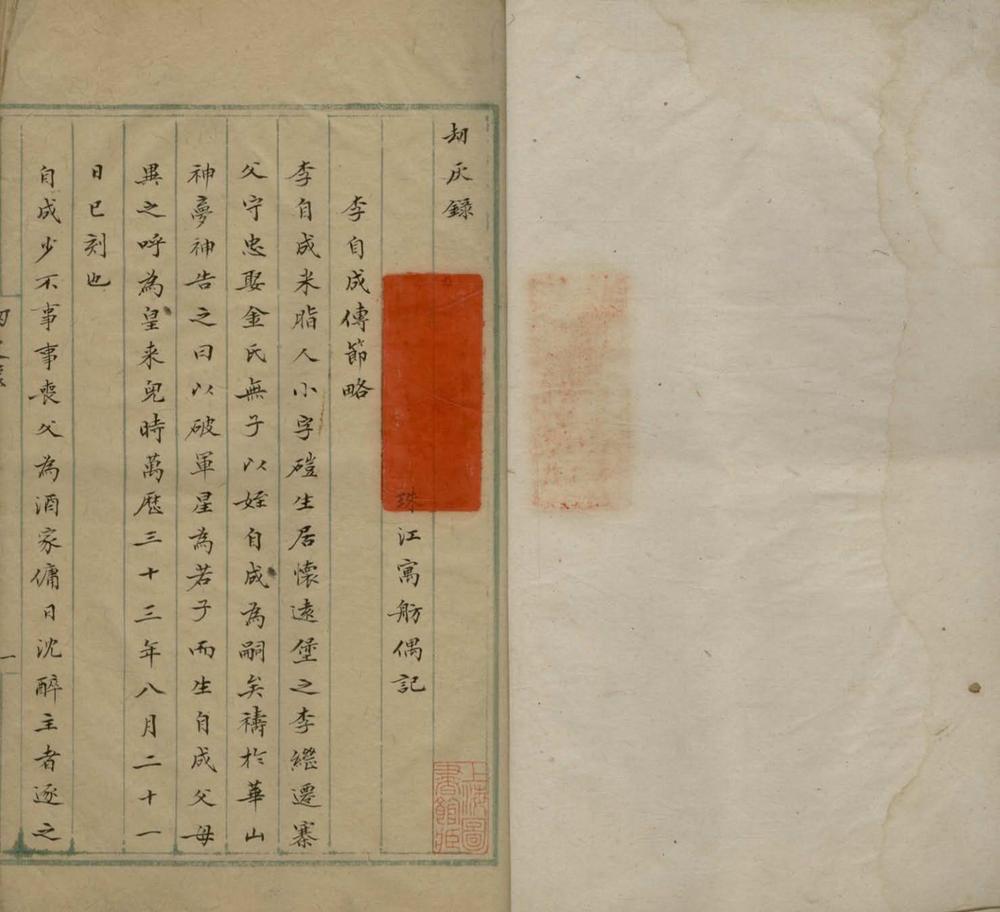 刼灰錄
珠江寓舫偶記
李自成傳節略
李自成米脂人小字磑生居懷遠堡之李繼遷寨
父守忠娶金氏無子以姪自成為嗣矣禱於華山
神夢神告之曰以破軍星為若子而生自成父母
異之呼為皇来兒時萬歷三十三年八月二十一
日巳刻也
自成少不事事喪父為酒家傭日沈醉主者逐之
一
上海圖書館藏